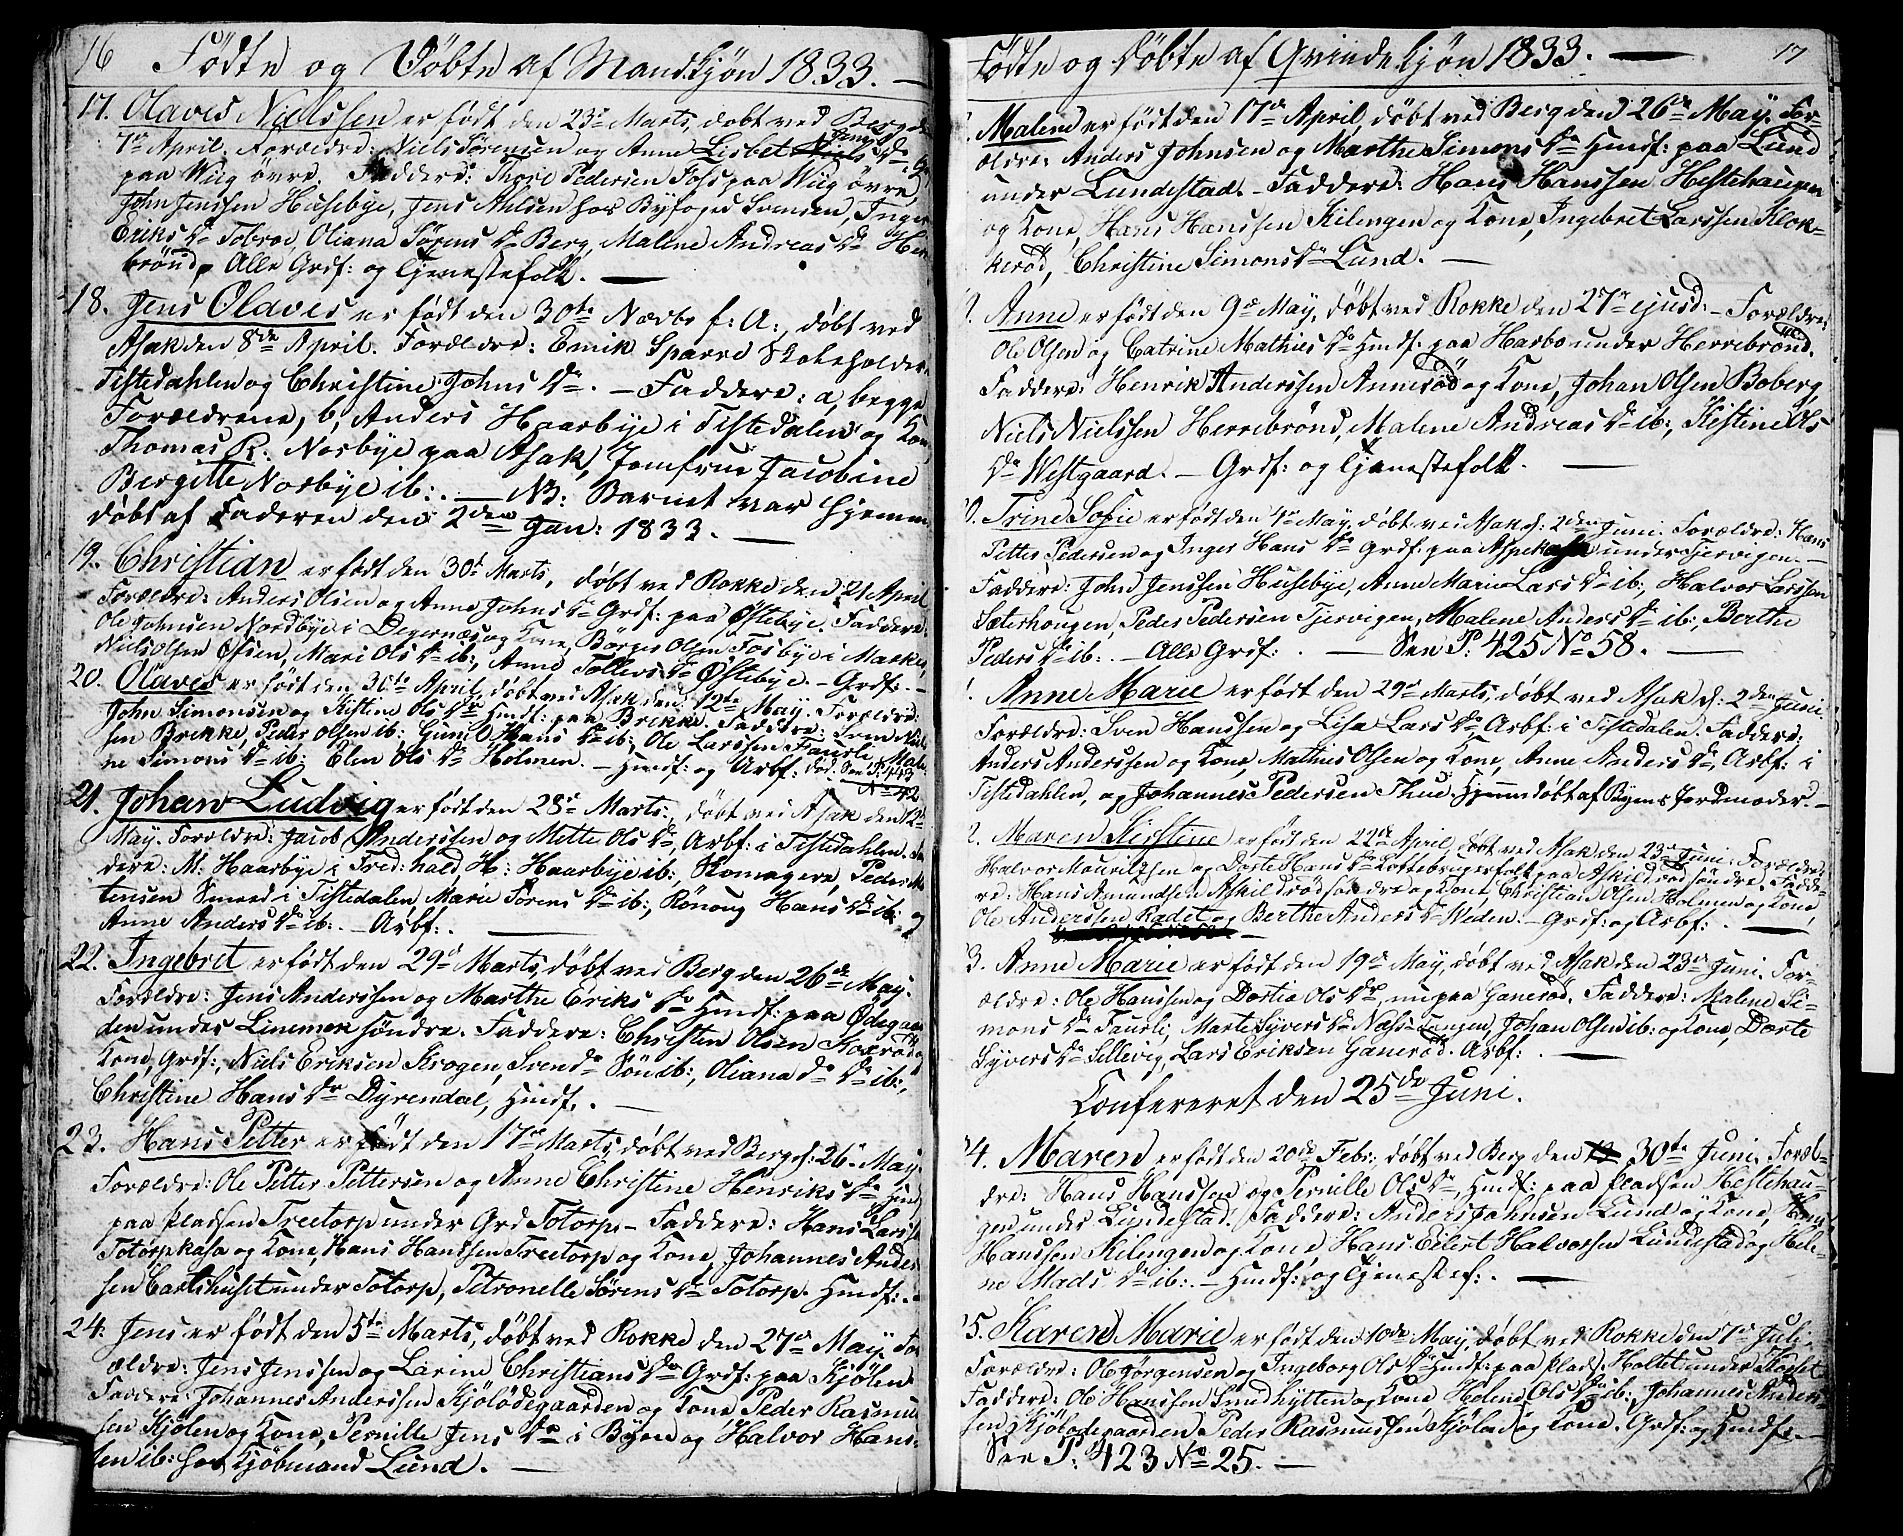 16 Födte og Döbte af Mandkjön 1833. —
17. Olaves Nielssen er født den 23de Marts, døbt ved Berg d:
7de April. Forældre: Niels Sörensen og Anne Lisbet Jens Dr
paa Wiig övre. Faddere: Thore Pedersen Foss paa Wiig övre,
John Jenssen Husebye, Jens Ahlsen hos Byfoged Svensen, Inger
Eriks Dr Tobroe, Oliana Sørens Dr Berg, Malene Andreas Dr Her-
brönd, Alle Grdf: og Tjenestefolk. —
18. Jens Olaves er født den 30te Novbr f: A:, døbt ved
Asak den 8de April. Forældre: Emik Sparre Skoleholder
Tistedahlen og Christine Johns Dr. — Faddere: a, begge
Forældrene, b, Anders Haarbye i Tistedalen og Kone
Thomas R. Norbye paa Asak, Jomfrue Jacobine
Bergitte Norbye ib:. — NB: Barnet var hjemme
døbt af Faderen den 2den Jan: 1833. —
19. Christian er født den 30te Marts, døbt ved Rokke den 21 April
Forældre: Anders Olsen og Anne Johns Dr Grdf: paa Østebye. Faddere:
Ole Johnsen Nordbye i Degernæs og Kone, Börger Olsen Fosbye i Marker,
Niels Olsen Øfsen, Mari Ols Dr ib:, Anne Tollevs Dr Østebye. — Grdf: —
20. Olaves er født den 30te April, døbt ved Asak den 12te May. Forældre:
John Simonsen og Kistine Ols Dr Huusf: paa Brekke. Faddere: Sven Niel-
sen Brekke, Peder Olsen ib: Gunil Hans Dr ib:, Ole Larssen Taursli, Male-
ne Simons Dr ib: Elen Ols Dr Holmen. — Huusf: og Arbf: död. See P: 443
No 42
21. Johan Ludvig er født den 28de Marts, døbt ved Asak den 12te
May. Forældre: Jacob Anderssen og Mette Ols Dr, Arbf: i Tistedahlen. Fad-
dere: M: Haarbye i Fred:hald, H: Haarbye ib:, Skomagere, Peder Mor-
tensen Smed i Tistedalen, Marie Sørens Dr ib:, Rönoug Hans Dr ib: og
Anne Anders Dr ib:. — Arbf:. —
22. Ingebret er født den 29de Marts, døbt ved Berg den 26de May.
Forældre: Jens Anderssen og Marthe Eriks Dr Huusf: paa Ødegaar-
den under Linemon söndre. Faddere: Christen Olsen Kosröd og
Kone, Grdf:, Niels Eriksen Krogen, Svend Do Søn ib:, Oliana Do Dr ib:,
Christine Hans Dr Dyrendal, Huusf:. —
23. Hans Petter er født den 17de Marts, døbt ved Berg d: 26de May
Forældre: Ole Petter Pettersen og Anne Christine Henriks Dr Huusf:
paa Pladsen Treetorp under Grd Totorp — Faddere: Hans Larssen
Totorpkasa og Kone, Hans Hanssen Treetorp og Kone, Johannes Ander-
sen Carlshuset under Totorp, Petronelle Sörens Dr Totorp. Huusf: —
24. Jens er født den 5te Marts, døbt ved Rokke den 27de May. For-
ældre: Jens Jenssen og Larine Christians Dr Grdf: paa Kjölen
Faddere: Johannes Anderssen Kjölödegaarden og Kone Peder Rasmus-
sen Kjölen og Kone, Pernille Jens Dr i Byen og Halvor Hans-
sen ib: hos Kjöbmand Lund. —
Födte og Döbte af Qvindekjön 1833. — 17
Malene er født den 17de April, døbt ved Berg den 26de May. For-
ældre: Anders Johnsen og Marthe Simons Dr Huusf: paa Lund
under Lundestad. — Faddere: Hans Hanssen Hestehaugen
og Kone, Hans Hanssen Kilengen og Kone, Ingebret Larssen Klok-
keröd, Christine Simons Dr Lund. —
Anne er født den 9de May, døbt ved Rokke den 27de ejusd: — Forældre:
Ole Olsen og Catrine Mathies Dr Huusf: paa Harbo under Herrebrönd.
Faddere: Henrik Anderssen Anneröd og Kone, Johan Olsen Boberg,
Niels Nielssen Herrebrönd, Malene Andreas Dr ib:, Kistine Ols
Dr Westgaard. — Grdf: og Tjenestefolk. —
0. Trine Sofie er født den 4de May, døbt ved Asak d: 2den Juni. Forældre: Hans
Petter Pedersen og Inger Hans Dr Grdf: paa Aspekasa under Tjervigen. —
Faddere: John Jenssen Husebye, Anne Marie Lars Dr ib:, Halvor Larssen
Sæterhougen, Peder Pedersen Tjervigen, Malene Anders Dr ib:, Berthe
Peders Dr ib:. — Alle Grdf:. — See P: 425 No 58. —
1. Anne Marie er født den 29de Marts, døbt ved Asak d: 2den Juni.
Forældre: Sven Hanssen og Lisa Lars Dr, Arbf: i Tistedalen. Faddere:
Anders Anderssen og Kone, Mathies Olsen og Kone, Anne Anders Dr, Arbf: i
Tistedahlen, og Johannes Pedersen Thue. Hjemmedøbt af Byens Jordmoder. —
2. Maren Kirstine er født den 22de April, døbt ved Asak den 23de Juni. Forældre:
Halvor Mauritzsen og Dorte Hans Dr paa Askildröd söndre. Fadde-
re: Hans Amundsen Askildröd söndre og Kone, Christian Olsen Holmen og Kone,
Ole Anderssen Kadet og Berthe Anders Dr Weden. — Grdf: og Arbf:. —
3. Anne Marie er født den 19de May, døbt ved Asak den 23de Juni. For-
ældre: Ole Hanssen og Dortea Ols Dr, nu paa Ganeröd. Faddere: Malene Si-
mons Dr Taursli, Marte Syvers Dr Næss-tangen, Johan Olsen ib: og Kone, Dorte
Syvers Dr Sillevig, Lars Eriksen Ganeröd. Arbf:. —
Confereret den 25de Juni.
4. Maren er født den 20de Febr:, døbt ved Berg den 30te Juni. Foræl-
dre: Hans Hanssen og Pernille Ols Dr, Huusf: paa Pladsen Hestehau-
gen under Lundestad. Faddere: Anders Johnsen Lund og Kone, Hans
Hanssen Kilengen og Kone, Hans Eilert Halvorsen Lundestad og Hele-
ne Mads Dr ib:. — Huusf: og Tjenestef:. —
5. Karen Marie er født den 10de May, døbt ved Rokke den 7de Juli.
Forældre: Ole Jörgensen og Ingeborg Ols Dr Huusf: paa Plads. Holtet under Skofet
Faddere: Ole Hanssen Lundhytten og Kone Helene Ols Dr ib:, Johannes Anders-
sen Kjölödegaarden, Peder Rasmussen Kjölen og Kone. Grdf: og Huusf:. —
See P: 423 No 25. —